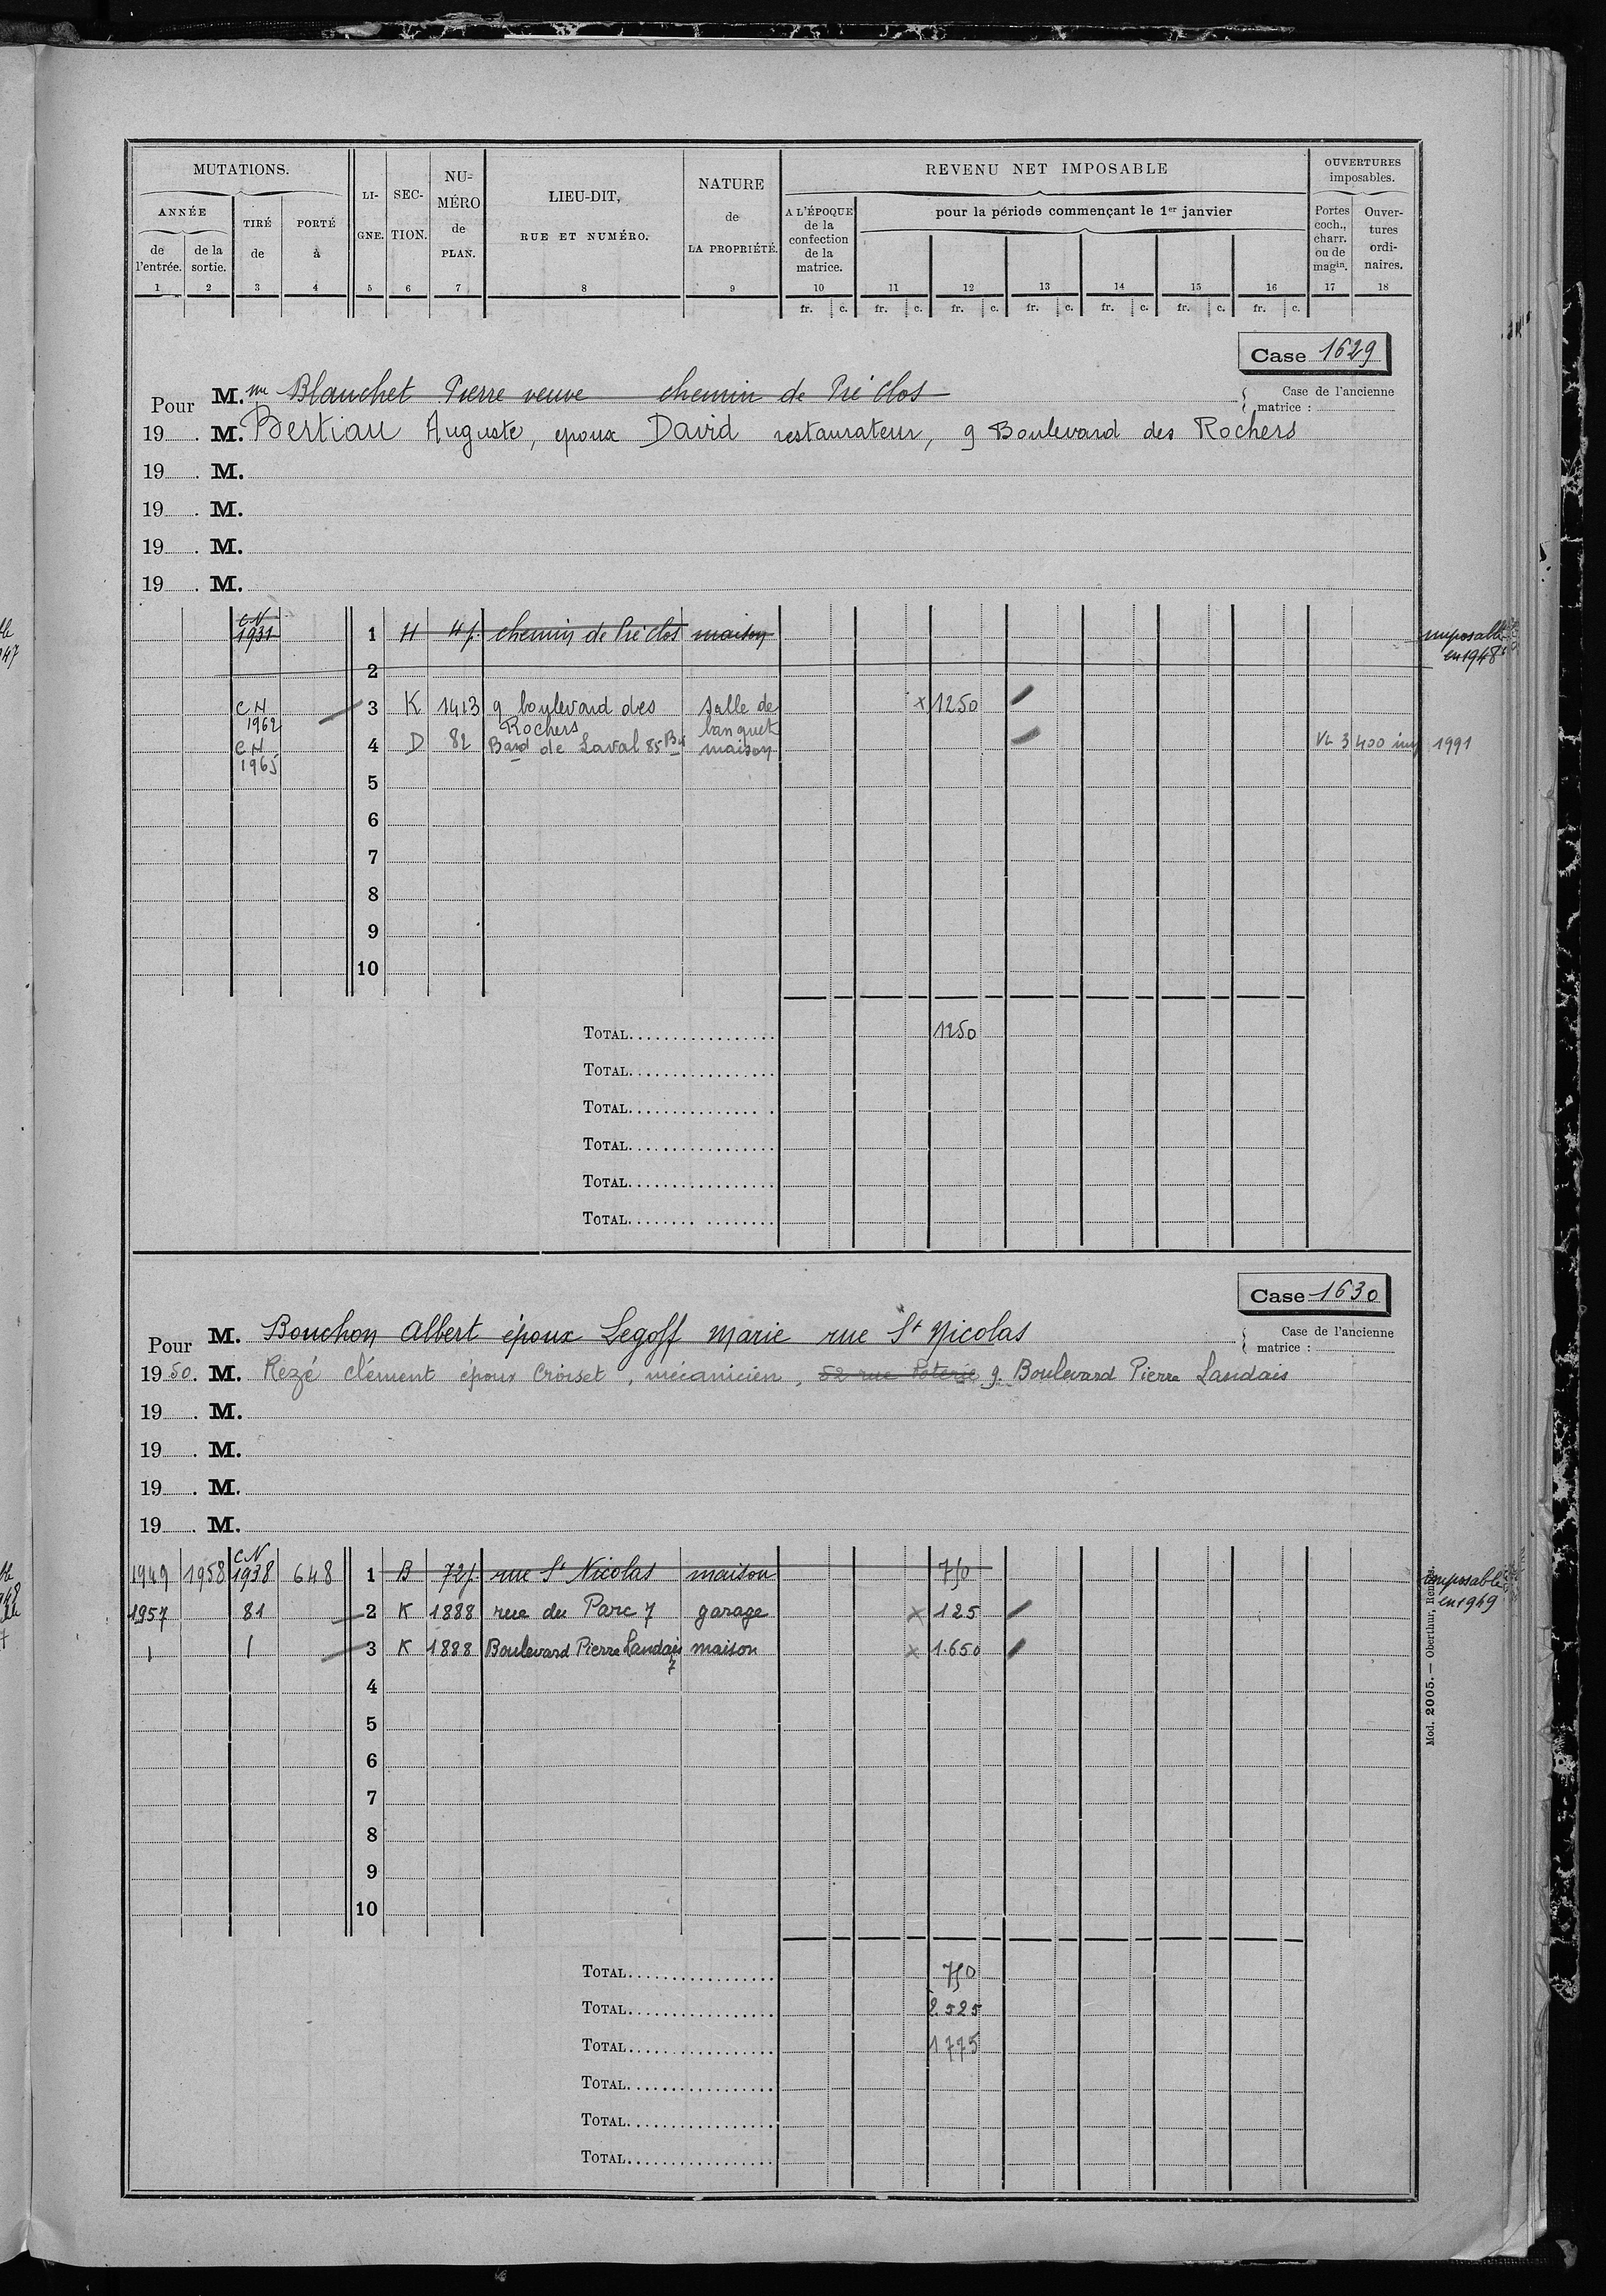 MUTATIONS.
ANNÉE
de l'entrée.
de la sortie.
TIRÉ de
PORTÉ à
LI-GNE.
SEC-TION.
NU-MÉRO de PLAN.
LIEU-DIT,
RUE ET NUMÉRO.
NATURE
de
LA PROPRIÉTÉ.
REVENU NET IMPOSABLE
A L'ÉPOQUE de la confection de la matrice.
pour la période commençant le 1er janvier
OUVERTURES imposables.
Portes coch., charr. ou de magin.
Ouver-tures ordi-naires.
1 2 3 4 5 6 7 8 9 10 11 12 13 14 15 16 17 18
fr. c. fr. c. fr. c. fr. c. fr. c. fr. c. fr. c.
Case 1629
Pour M.me Blanchet Pierre veuve chemin de Pré Clos
Case de l'ancienne matrice :
19 . M. Bertiau Auguste, époux David restaurateur, 9 Boulevard des Rochers
19 . M.
19 . M.
19 . M.
19 . M.
CN 1931 1 H 4p. chemin de Pré Clos maison imposable en 1948
2
CN 1962 3 K 1413 9 boulevard des Rochers salle de banquet x 1250
CN 1965 4 D 82 Bard de Laval 85 Bis maison VL 3400 imp 1991
5
6
7
8
9
10
TOTAL 1250
TOTAL
TOTAL
TOTAL
TOTAL
TOTAL
Case 1630
Pour M. Bouchon Albert époux Legoff Marie rue St Nicolas
Case de l'ancienne matrice :
19 50. M. Rezé clément époux Croiset, mécanicien, 52 rue Poterie 9. Boulevard Pierre Landais
19 . M.
19 . M.
19 . M.
19 . M.
1949 1958 CN 1938 648 1 B 72p. rue St Nicolas maison 750 imposable en 1949
1957 81 2 K 1888 rue du Parc 7 garage x 125
3 K 1888 Boulevard Pierre Landais 7 maison x 1.650
4
5
6
7
8
9
10
TOTAL 750
TOTAL 2.525
TOTAL 1775
TOTAL
TOTAL
TOTAL
Mod. 2005. — Oberthur, Rennes.